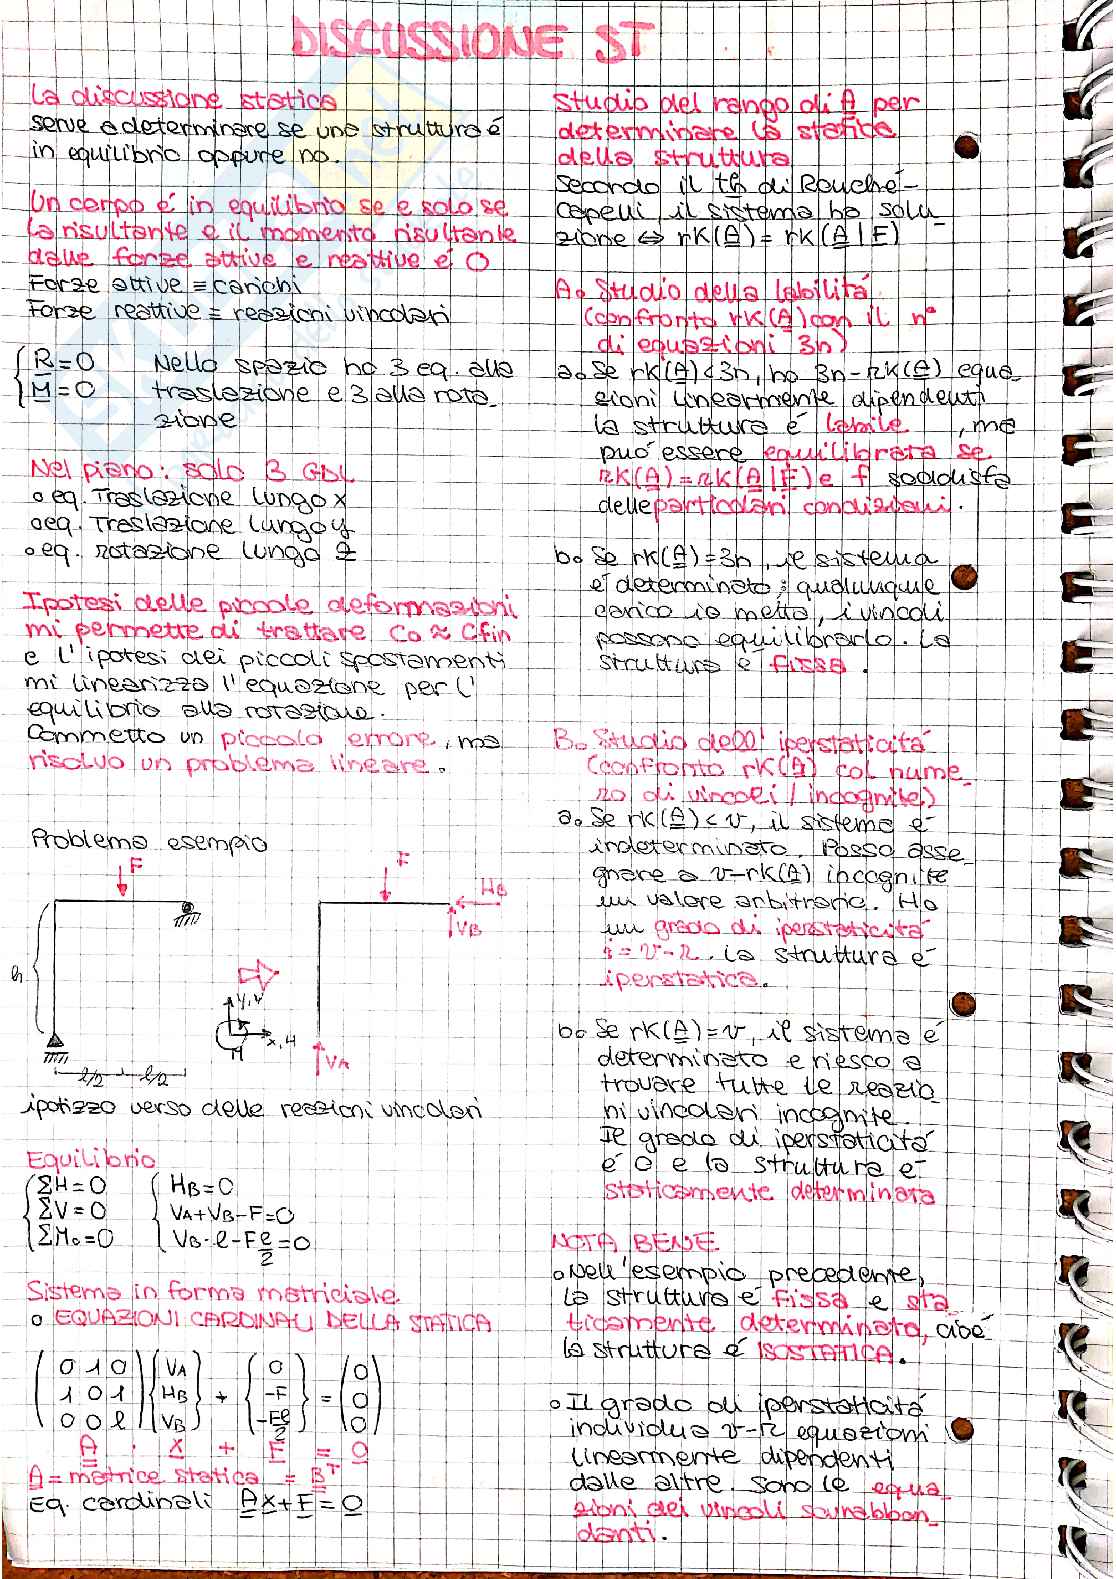 DISCUSSIONE ST
La discussione statica
serve a determinare se una struttura é
in equilibrio oppure no.
Un corpo é in equilibrio se e solo se
la risultante e il momento risultante
delle forze attive e reattive é 0
Forze attive ≡ carichi
Forze reattive ≡ reazioni vincolari
{ R = 0 Nello spazio ho 3 eq. alla
{ M = 0 traslazione e 3 alla rota_
zione
Nel piano: solo 3 GDL
o eq. Traslazione lungo x
o eq. Traslazione lungo y
o eq. rotazione lungo z
Ipotesi delle piccole deformazioni
mi permette di trattare Co ≈ Cfin
e l'ipotesi dei piccoli spostamenti
mi linearizza l'equazione per l'
equilibrio alla rotazione.
Commetto un piccolo errore, ma
risolvo un problema lineare.
Problema esempio
F
h
l/2 l/2
F
HB
VB
VA
y,V
x,H
M
ipotizzo verso delle reazioni vincolari
Equilibrio
{ ΣH = 0 { HB = 0
{ ΣV = 0 { VA + VB - F = 0
{ ΣMo = 0 { VB · l - F l/2 = 0
Sistema in forma matriciale
o EQUAZIONI CARDINALI DELLA STATICA
( 0 1 0 ) { VA } { 0 } ( 0 )
( 1 0 1 ) { HB } + { -F } = ( 0 )
( 0 0 l ) { VB } { -Fl/2 } ( 0 )
A · X + F = 0
A = matrice statica = B^T
Eq. cardinali AX + F = 0
Studio del rango di A per
determinare la statica
della struttura
Secondo il th di Rouché-
Capelli il sistema ha solu_
zione ⇔ rk(A) = rk(A|F)
A. Studio della labilitá
(confronto rk(A) con il n°
di equazioni 3n)
a. Se rk(A) < 3n, ho 3n - rk(A) equa_
zioni linearmente dipendenti
la struttura é labile, ma
puó essere equilibrata se
rk(A) = rk(A|F) e f soddisfa
delle particolari condizioni.
b. Se rk(A) = 3n, il sistema
é determinato; qualunque
carico io metta, i vincoli
possono equilibrarlo. La
struttura é fissa.
B. Studio dell' iperstaticitá
(confronto rk(A) col nume_
ro di vincoli / incognite)
a. Se rk(A) < v, il sistema é
indeterminato. Posso asse_
gnare a v-rk(A) incognite
un valore arbitrario. Ho
un grado di iperstaticitá
i = v - r. La struttura é
iperstatica.
b. Se rk(A) = v, il sistema é
determinato e riesco a
trovare tutte le reazio_
ni vincolari incognite.
Il grado di iperstaticitá
é 0 e la struttura é
staticamente determinata
NOTA BENE
o Nell'esempio precedente,
la struttura é fissa e sta_
ticamente determinata, cioé
la struttura é ISOSTATICA.
o Il grado di iperstaticitá
individua v-r equazioni
linearmente dipendenti
dalle altre. Sono le equa_
zioni dei vincoli sovrabbon_
danti.